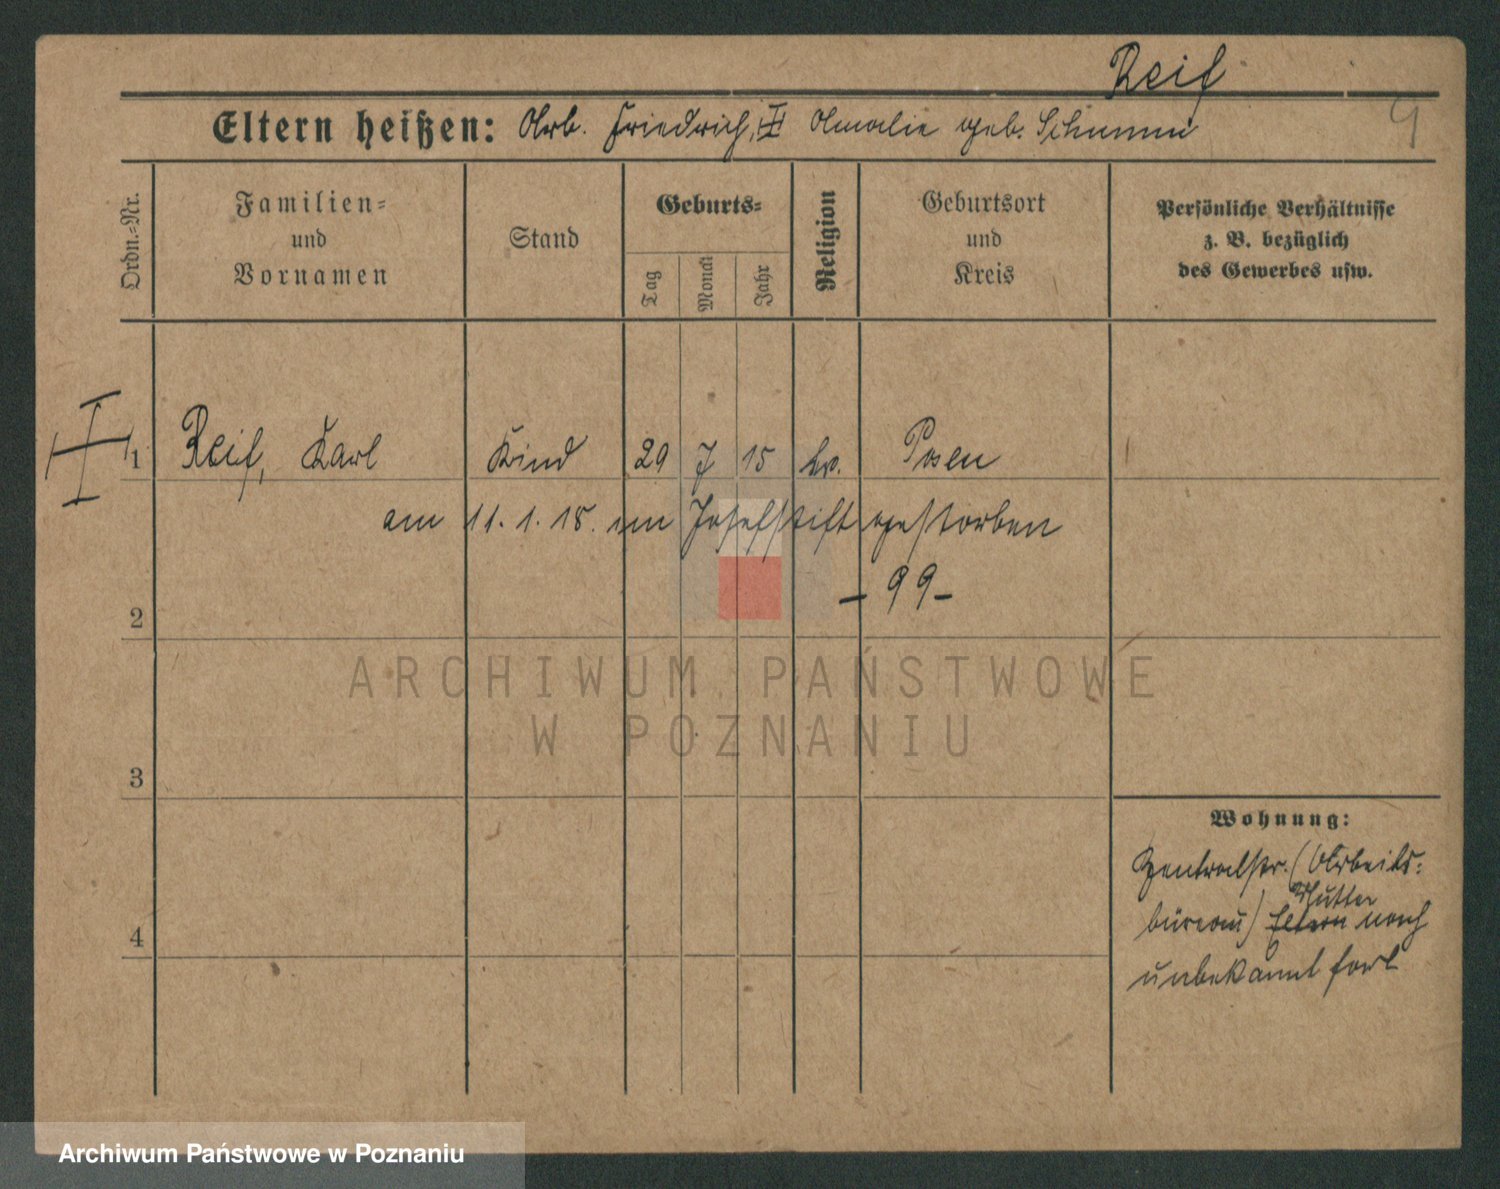 Reif
9
Eltern heißen: Arb. Friedrich, Amalie geb. Schumm
Ordn.-Nr.
Familien- und Vornamen
Stand
Geburts-
Tag
Monat
Jahr
Religion
Geburtsort und Kreis
Persönliche Verhältnisse
z. B. bezüglich
des Gewerbes usw.
1 Reif, Karl Kind 29 7 15 Ev. Posen
am 11. 1. 18. im Josefstift gestorben
- 99 -
2
3
4
Wohnung:
Zentralstr. (Arbeits-
Mutter
büreau) Eltern nach
unbekannt fort
ARCHIWUM PAŃSTWOWE
W POZNANIU
Archiwum Państwowe w Poznaniu